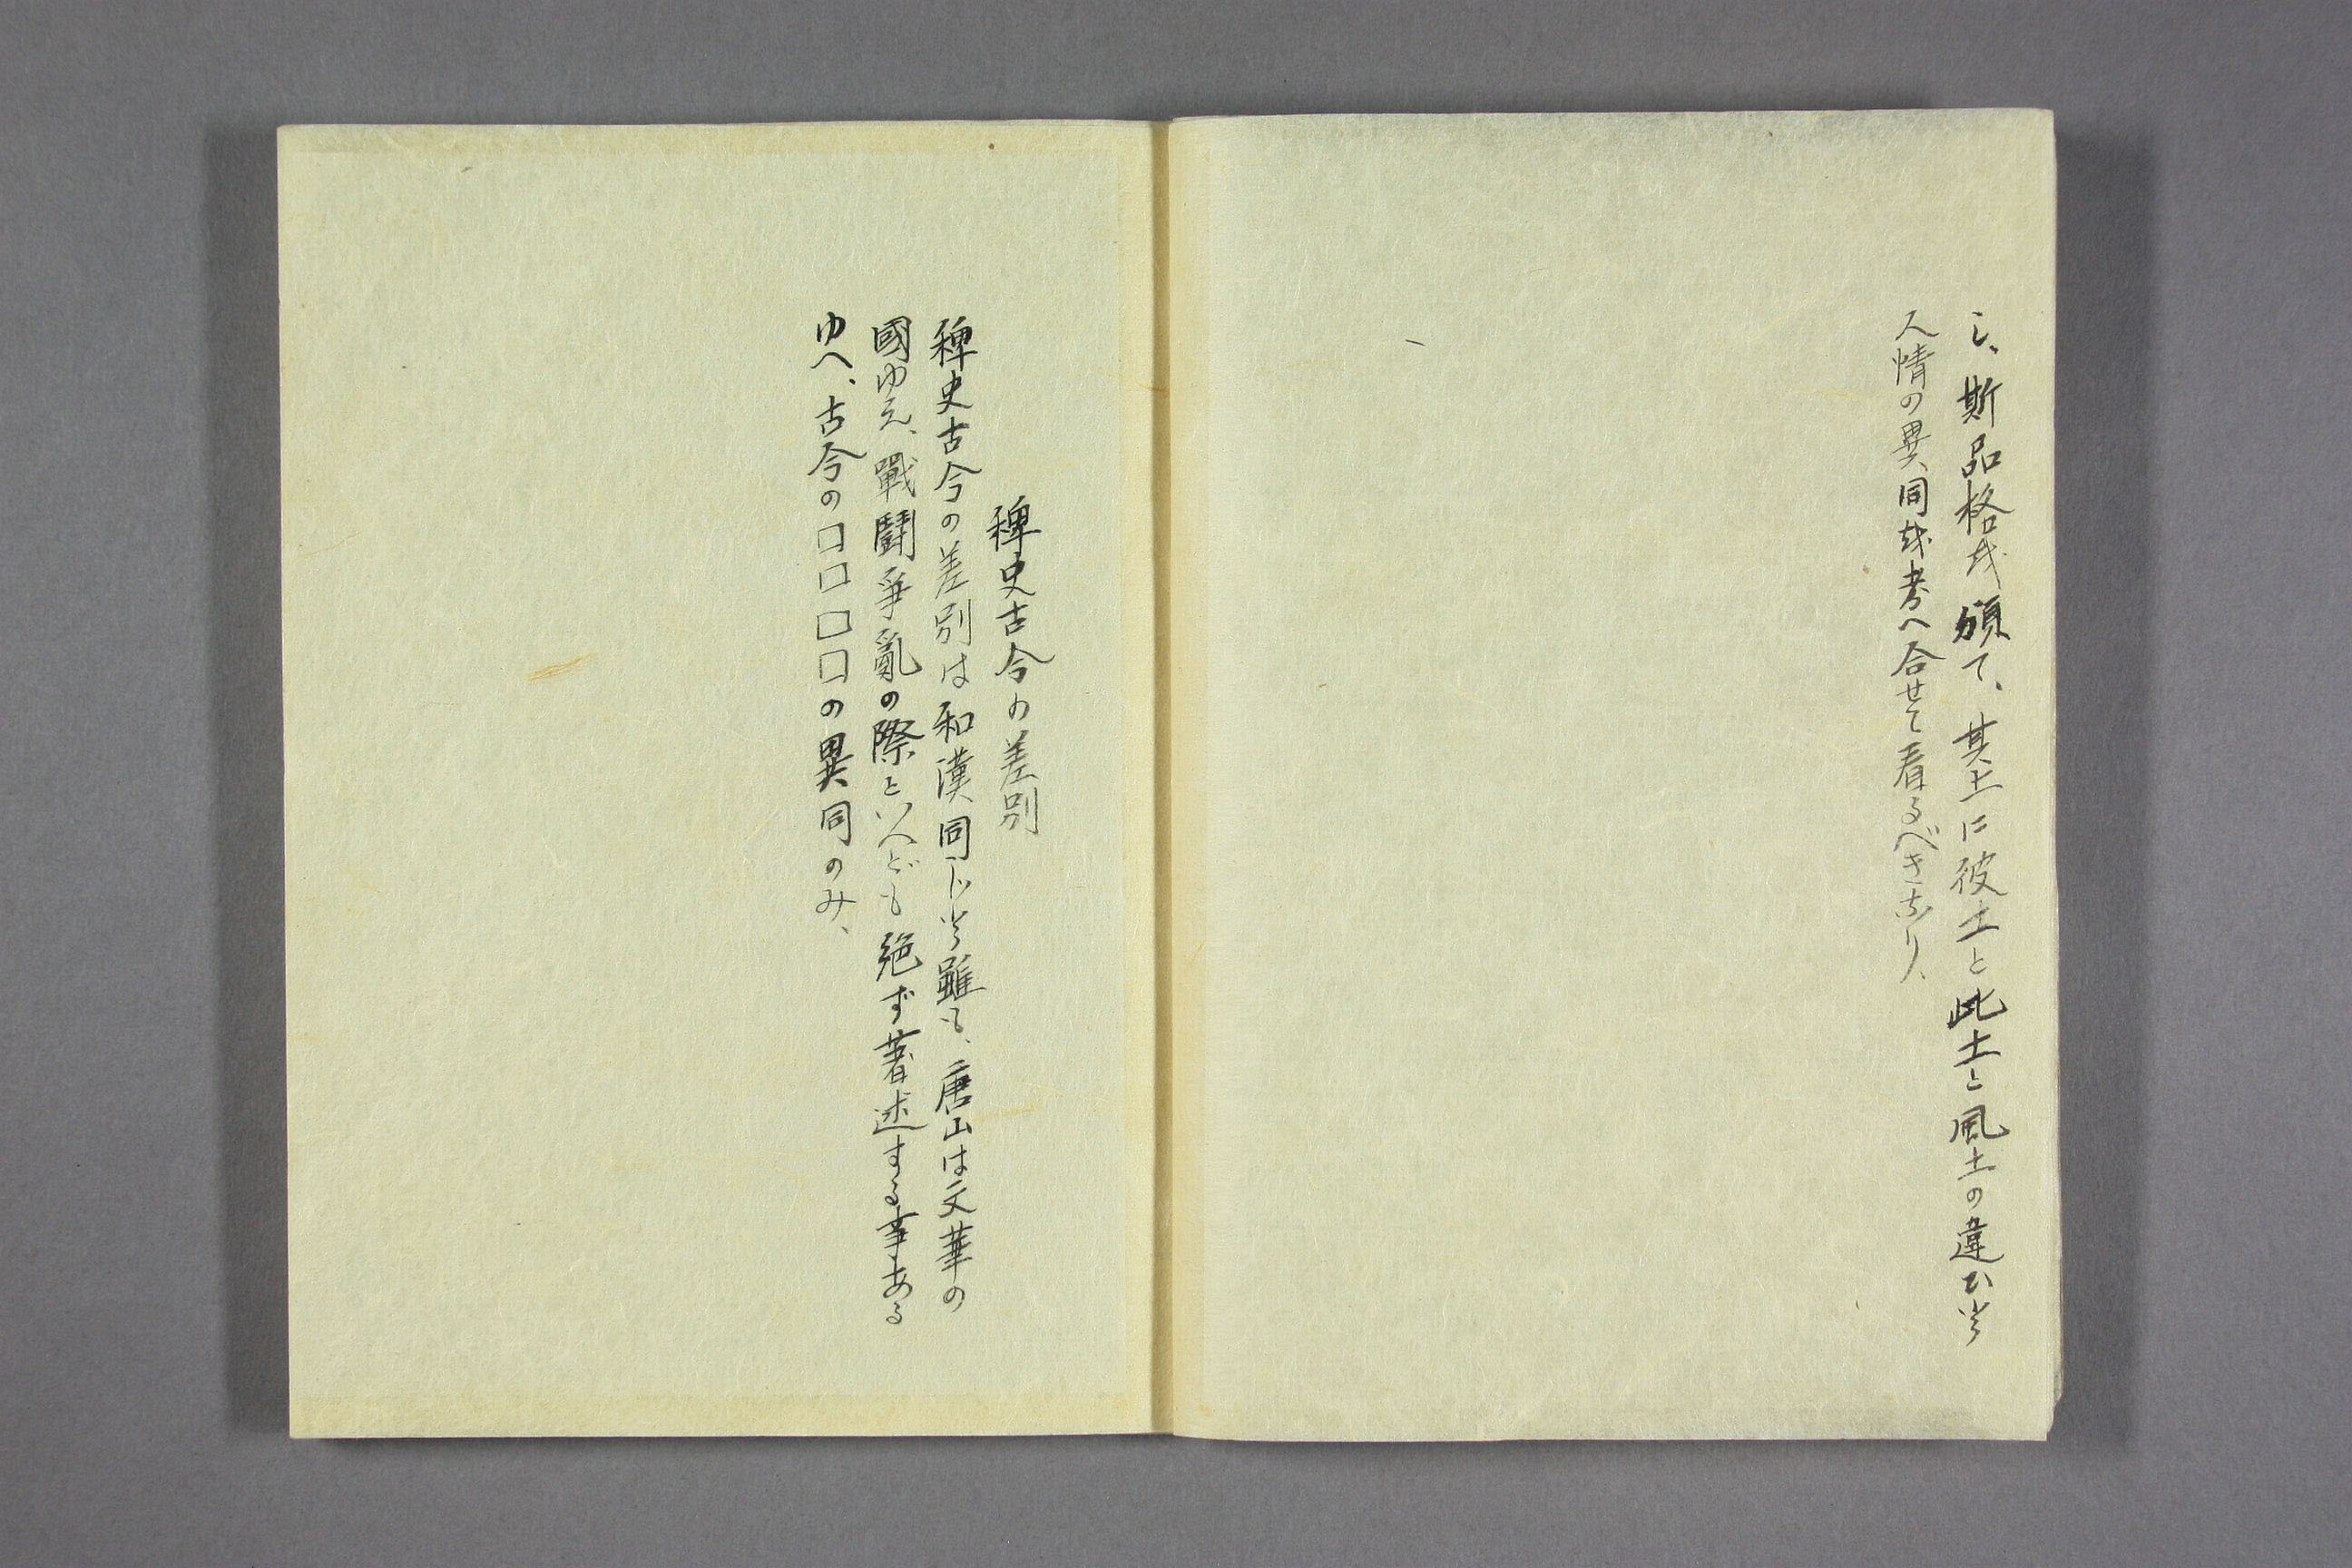 し、斯品格を頒て、其土に彼土と此土と風土の違ひと
人情の異同を考へ合せて看るべきなり、
稗史古今の差別
稗史古今の差別は和漢同じと雖も、唐山は文華の
國ゆえ、戰鬪爭亂の際といへども絶ず著述する事ある
ゆへ、古今の□□□□の異同のみ、